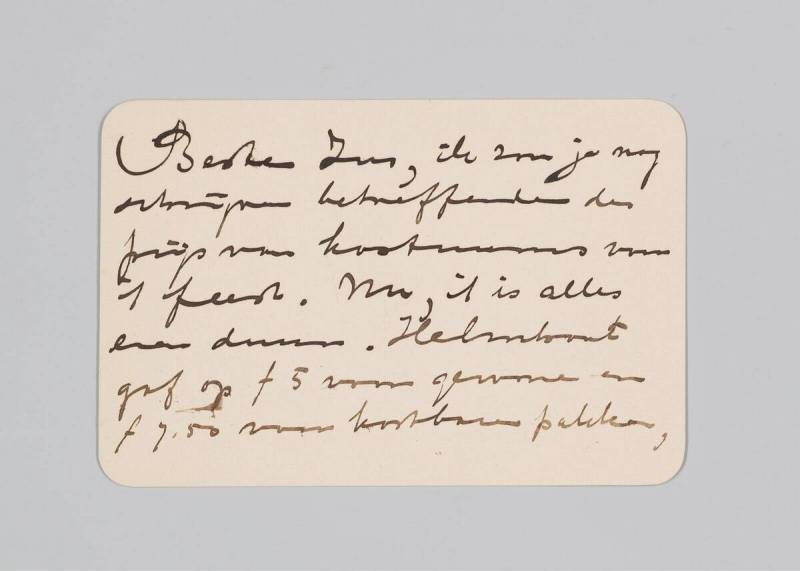 Beste Jus, ik zou je nog
schrijven betreffende de
prijs van kostuums voor
't feest. Nu, 't is alles
even duur. Helmhout
gaf op f 5 voor gewone en
f 7.50 voor kostbare pakken,